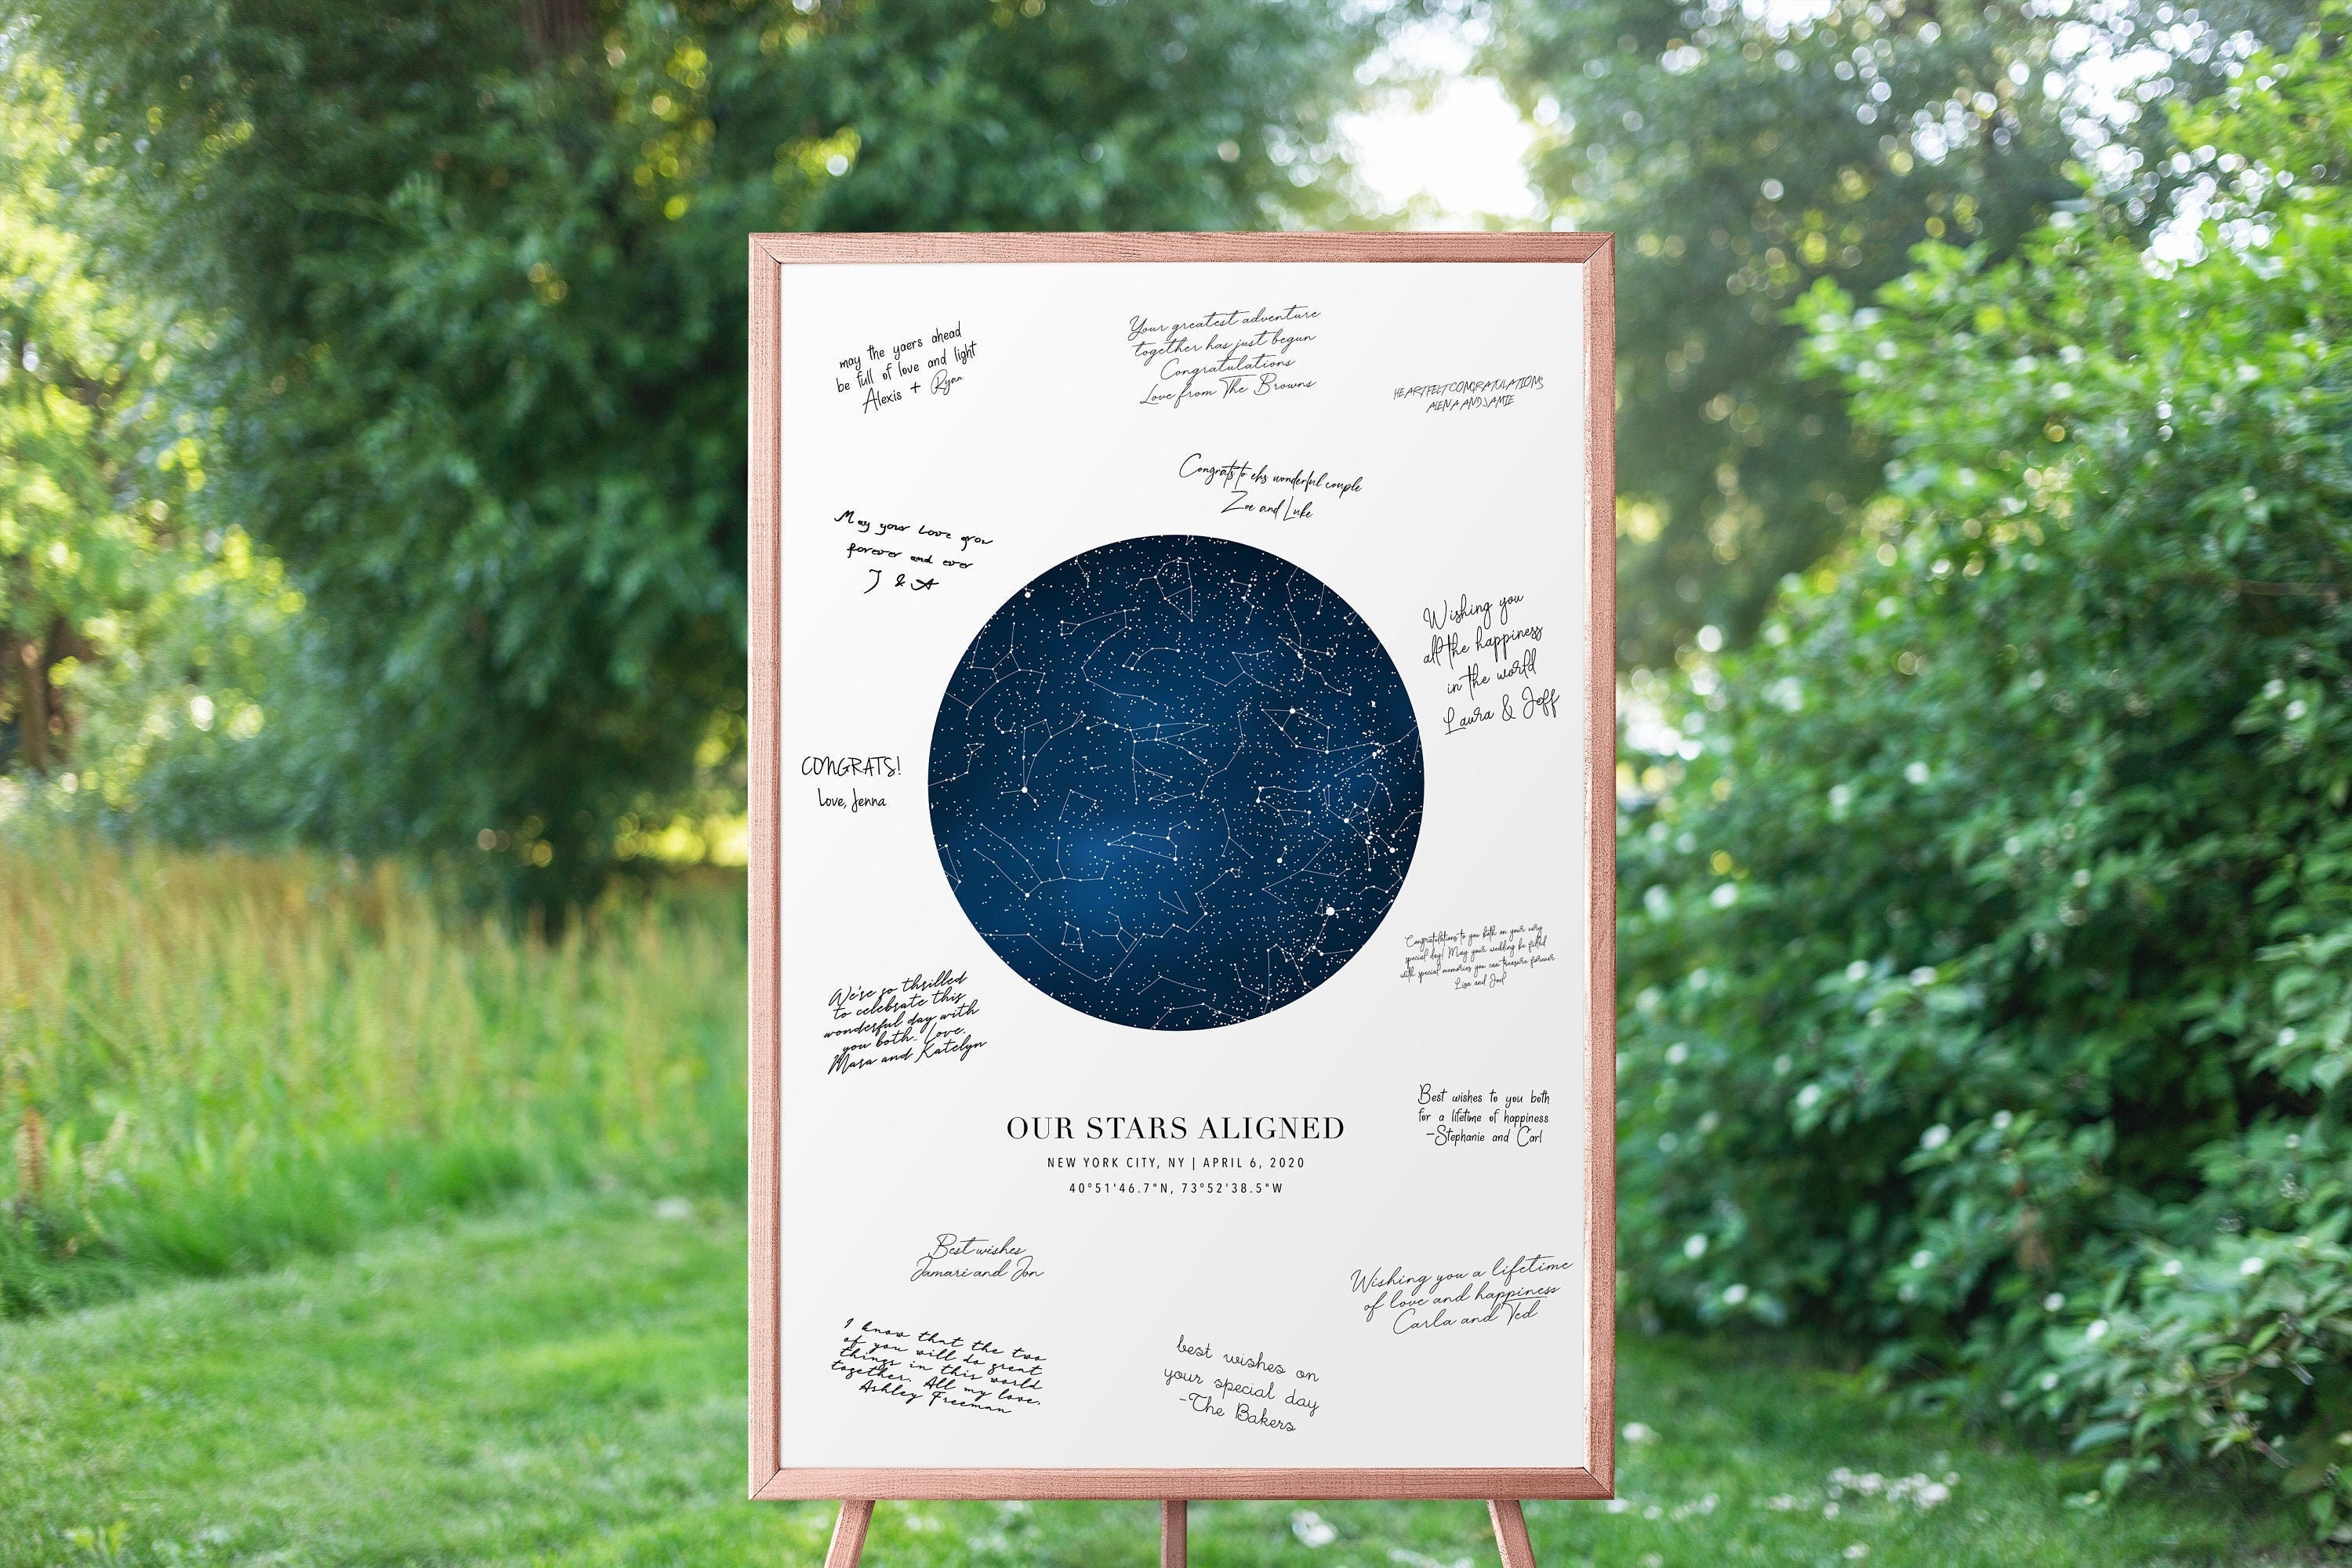 may the yaers ahead
be full of love and light
Alexis + Ryan
Your greatest adventure
together has just begun
Congratulations
Love from The Browns
HEARTFELT CONGRATULATIONS
ALENA AND JAMIE
Congrats to ehs wonderful couple
Zoe and Luke
May your Love grow
forever and ever
J & A
Wishing you
all the happiness
in the world
Laura & Jeff
CONGRATS!
Love, Jenna
Congratulations to you both on your very
special day! May your wedding be filled
with special memories you can treasure forever
Lisa and Joel
We're so thrilled
to celebrate this
wonderful day with
you both. Love,
Mara and Katelyn
Best wishes to you both
for a lifetime of happiness
-Stephanie and Carl
OUR STARS ALIGNED
NEW YORK CITY, NY | APRIL 6, 2020
40°51'46.7"N, 73°52'38.5"W
Best wishes
Jamari and Jon
Wishing you a lifetime
of love and happiness
Carla and Ted
I know that the two
of you will do great
things in this world
together. All my love,
Ashley Freeman
best wishes on
your special day
-The Bakers